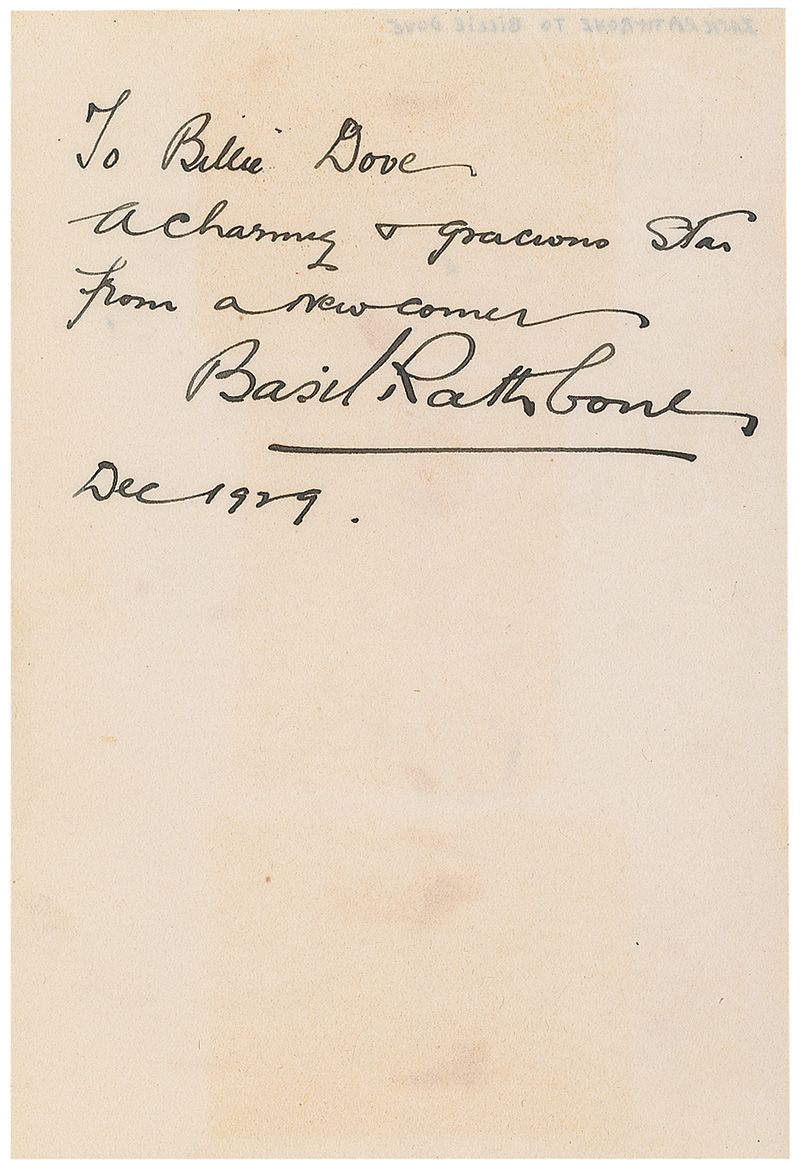 BASIL RATHBONE TO BILLIE DOVE
To Billie Dove
A charming & gracious Star
from a newcomer
Basil Rathbone
Dec 1929.